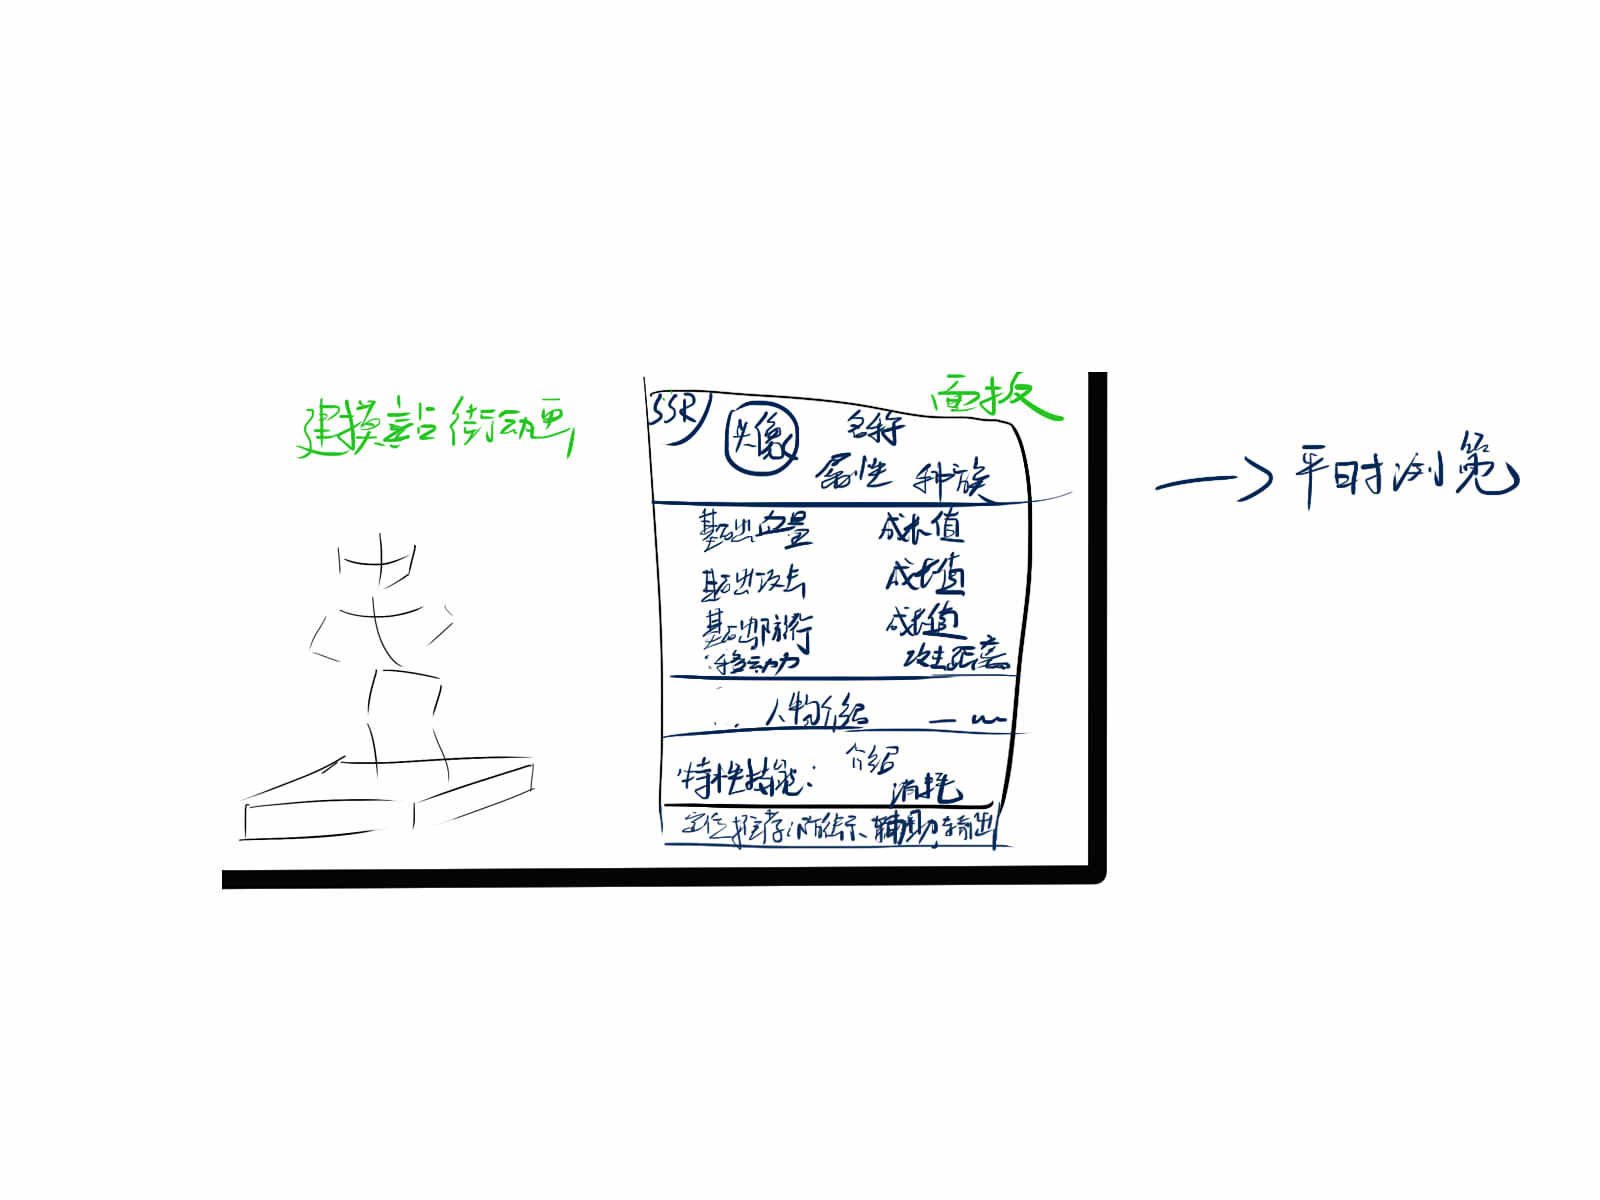 建模站街动画
面板
SSR
头像
名称
属性 种族
基础血量 成长值
基础攻击 成长值
基础防御 成长值
移动力 攻击距离
人物介绍
特性技能: 介绍
消耗
定位推荐
辅助 输出
平时浏览